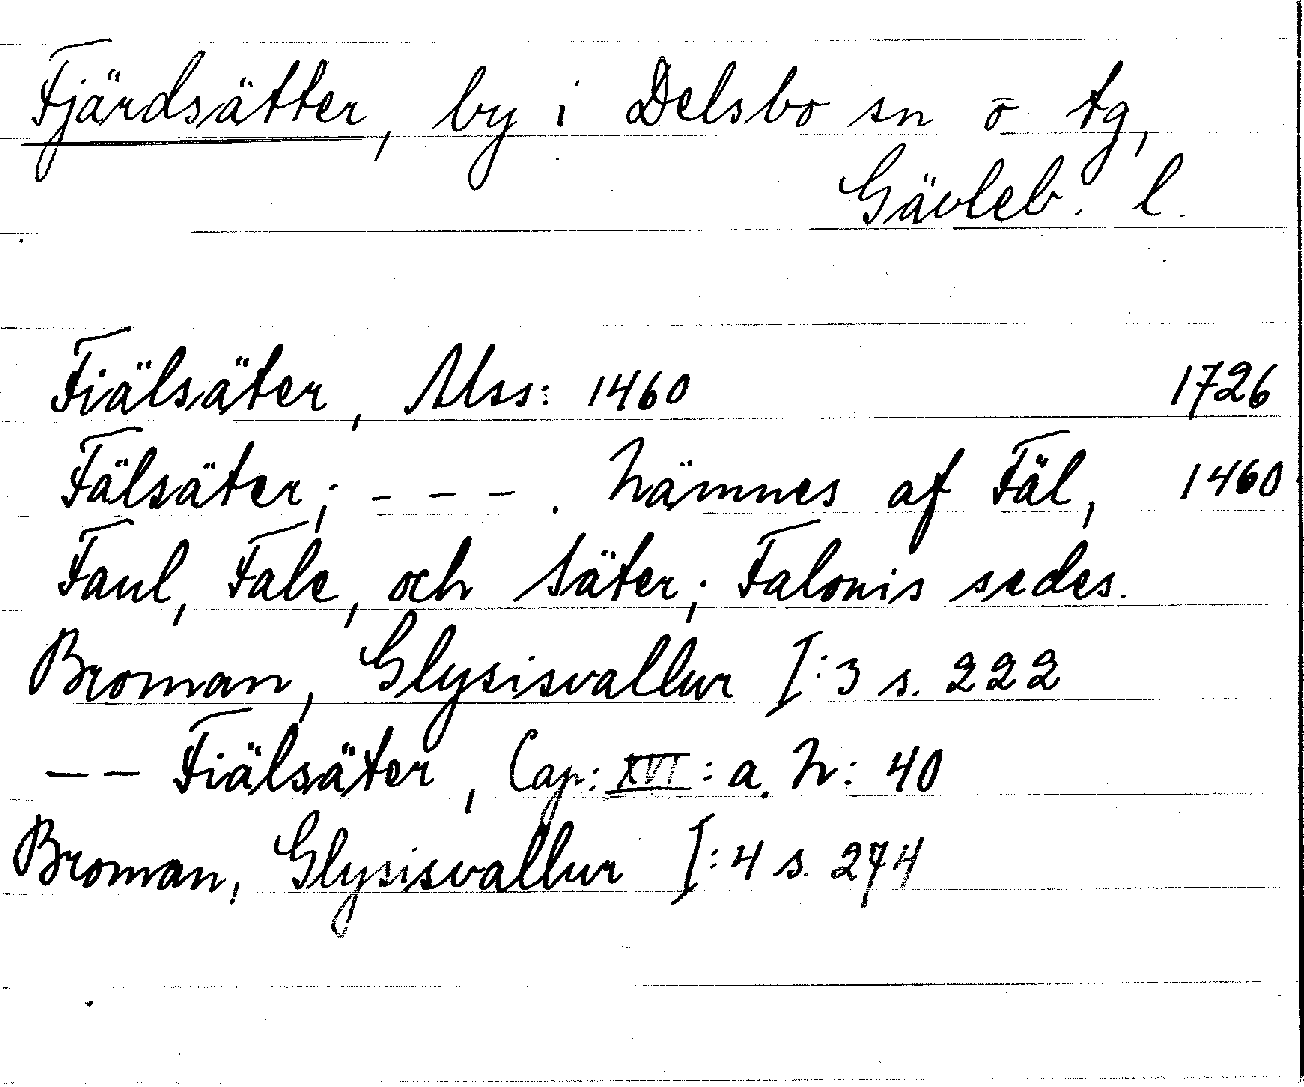 Fjärdsätter, by i Delsbo sn o tg,
Gävleb. l.
Fiälsäter, Mss: 1460 1726
Fälsäter; - - - . Nämnes af Fäl, 1460
Faul, Fale, och Säter; Falonis sedes.
Broman, Glysisvallur I:3 s. 222
-- Fiälsäter, Cap: XVI: a. N: 40
Broman, Glysisvallur I:4 s. 274